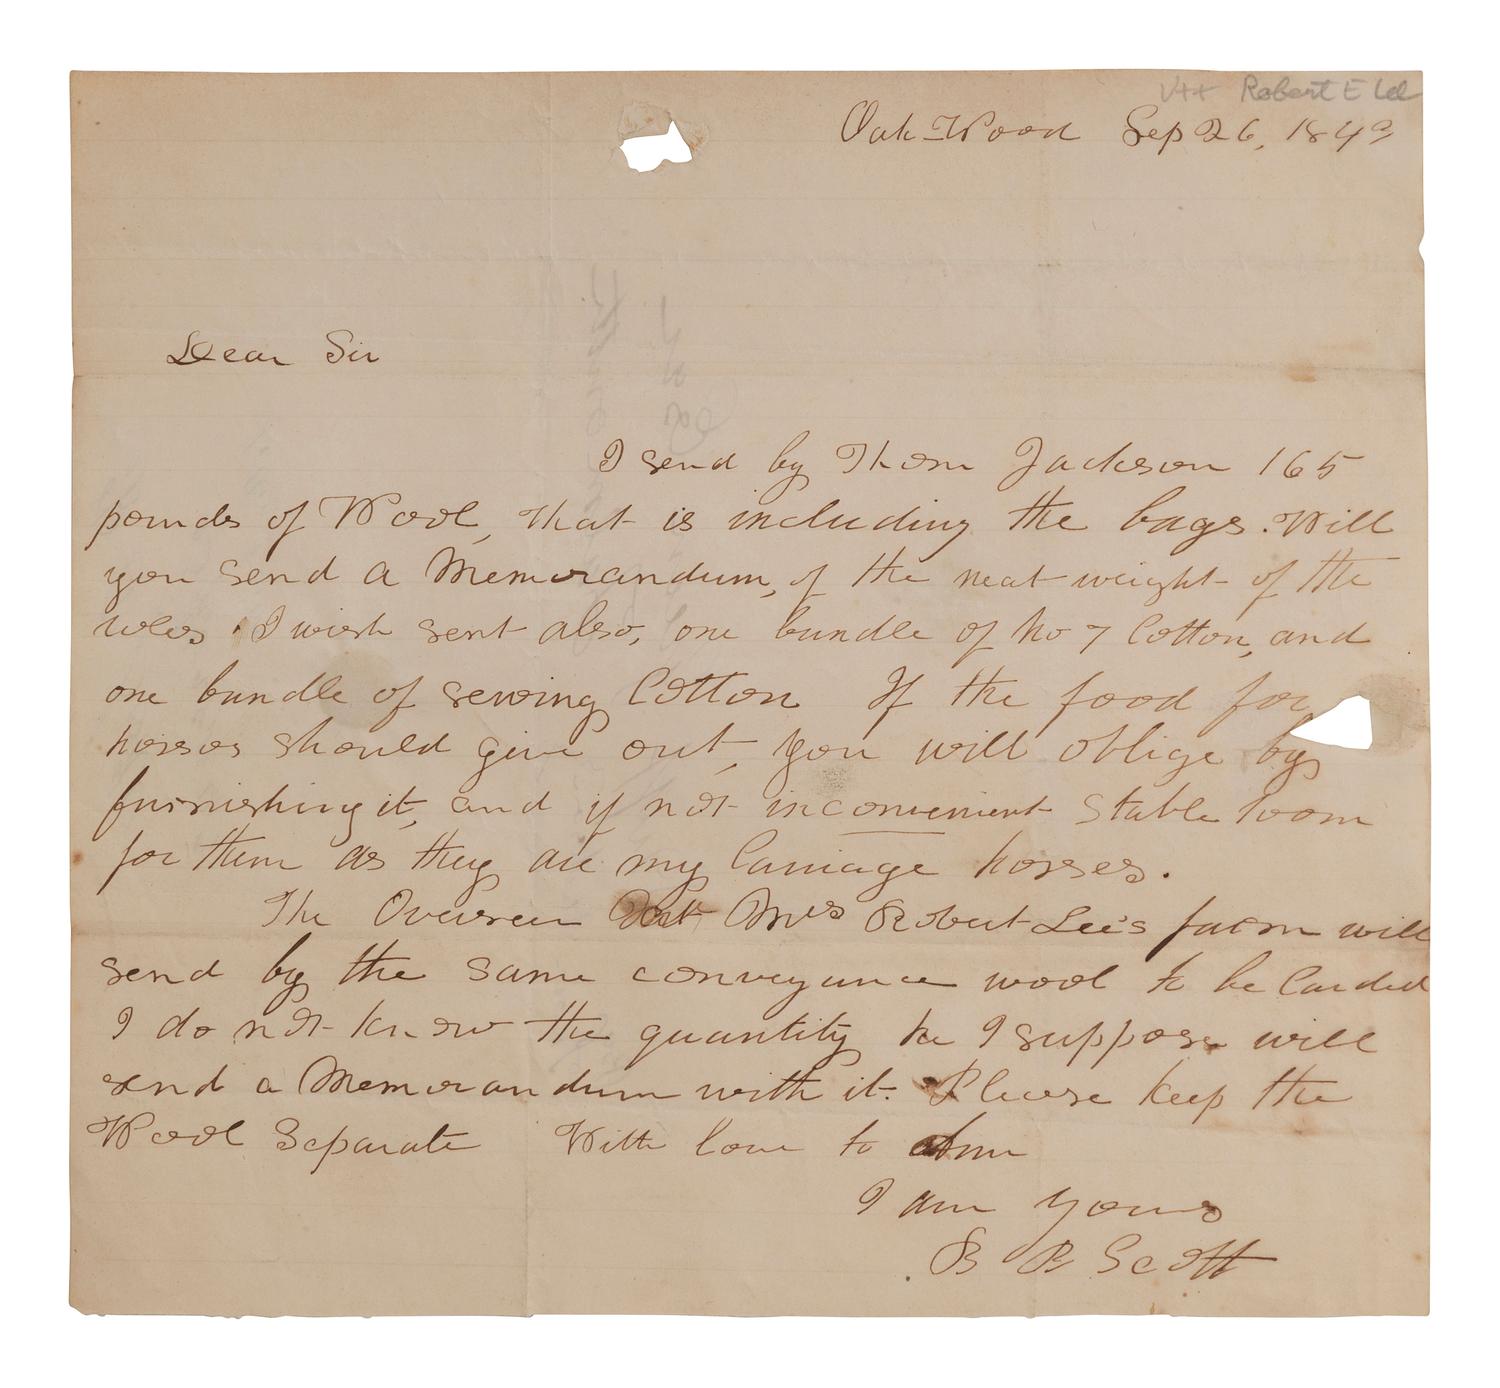 Robert E Lee
Oak-Wood Sep 26, 1849
Dear Sir
I send by Thom Jackson 165
pounds of Wool, that is including the bags. Will
you send a Memorandum, of the neat weight of the
I wish sent also, one bundle of No 7 Cotton, and
one bundle of sewing Cotton If the food for
horses should give out, you will oblige by
furnishing it, and if not inconvenient stable room
for them as they are my Carriage horses.
The Overseer at Mrs Robert Lee's farm will
send by the same conveyance wool to be Carded
I do not know the quantity he I suppose will
send a Memorandum with it. Please keep the
Wool Separate With love to Ann
I am yours
B R Scott